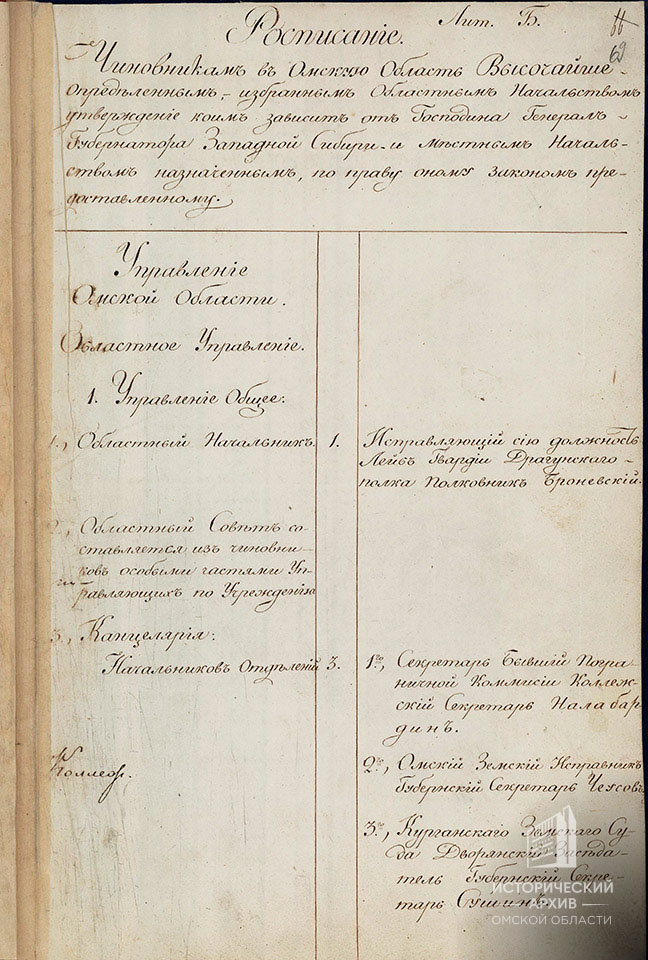 Лит. Б.
62
Росписаніе.
Чиновникамъ въ Омскую Область Высочайше
опредѣленнымъ, избраннымъ Областнымъ Начальствомъ
утвержденіе коимъ зависитъ отъ Господина Генералъ-
Губернатора Западной Сибири и мѣстнымъ Началь-
ствомъ назначеннымъ, по праву оному закономъ пре-
доставленному.
Управленіе
Омской Области.
Областное Управленіе.
1. Управленіе Общее:
1., Областный Начальникъ. 1. Исправляющій сію должность
Лейбъ Гвардіи Драгунскаго
полка Полковникъ Броневскій.
2., Областный Совѣтъ со-
ставляется изъ чиновни-
ковъ особыми частями Уп-
равляющихъ по Учрежденію
3., Канцелярія:
Начальниковъ Отдѣленій 3. 1е, Секретарь Бывшій Погра
ничной Коммисіи Коллеж-
скій Секретарь Налабар
динъ.
2е, Омскій Земскій Исправникъ
Губернскій Секретарь Чеусовъ
3е, Курганскаго Земскаго Су-
да Дворянскій Засѣда-
тель Губернскій Секре-
тарь Сушинъ
ИСТОРИЧЕСКИЙ
АРХИВ
ОМСКОЙ ОБЛАСТИ